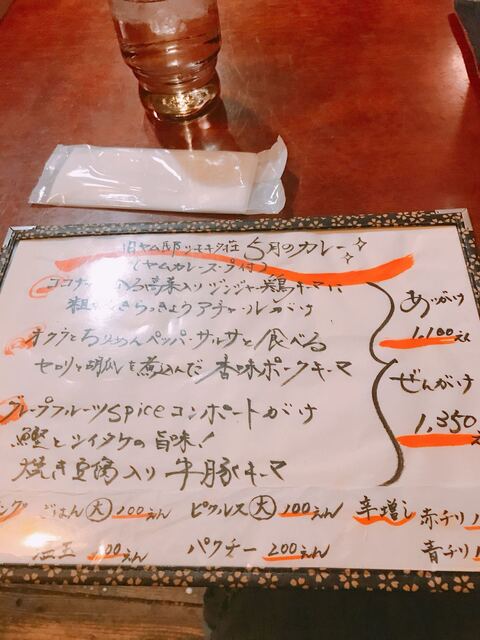 旧ヤム邸シモキタ荘 5月のカレー
(ヤムカレースープ付)
ココナッツ 香る高菜入りジンジャー鶏キーマに
粗 きらっきょうアチャールがけ
オクラとちりめんペッパーサルサと食べる
セロリと胡瓜を煮込んだ香味ポークキーマ
グレープフルーツspiceコンポートがけ
鰹とシイタケの旨味!
焼き豆腐入り牛豚キーマ
あいがけ
1,100えん
ぜんがけ
1,350
ごはん 大 100えん ピクルス 大 100えん 辛増し 赤チリ
玉 00えん パクチー 200えん 青チリ